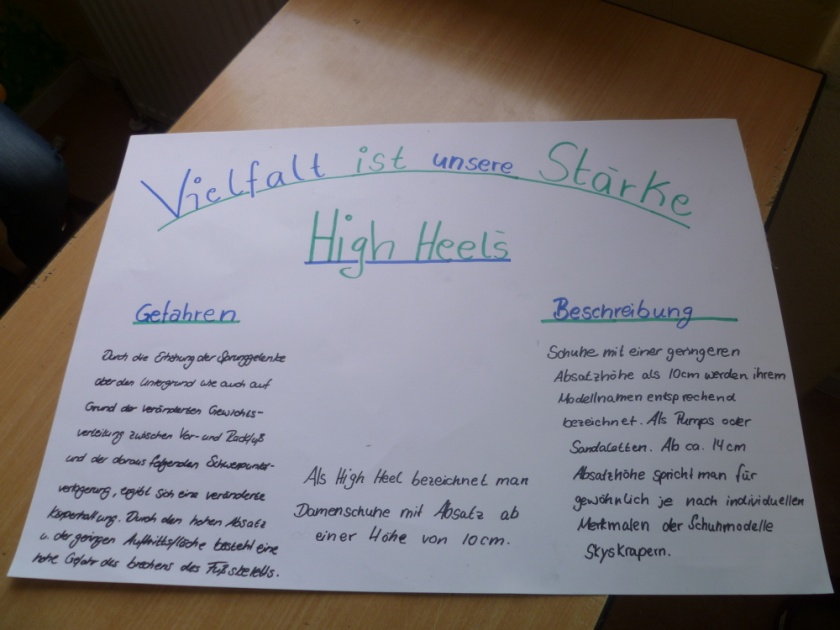 Vielfalt ist unsere Stärke
High Heels
Gefahren
Durch die Erhöhung der Sprunggelenke
über den Untergrund wie auch auf
Grund der veränderten Gewichts-
verteilung zwischen Vor- und Rückfuß
und der daraus folgenden Schwerpunkt-
verlagerung, ergibt sich eine veränderte
Körperhaltung. Durch den hohen Absatz
u. der geringen Auftrittsfläche besteht eine
hohe Gefahr des brechens des Fußskeletts.
Als High Heel bezeichnet man
Damenschuhe mit Absatz ab
einer Höhe von 10cm.
Beschreibung
Schuhe mit einer geringeren
Absatzhöhe als 10cm werden ihrem
Modellnamen entsprechend
bezeichnet. Als Pumps oder
Sandaletten. Ab ca. 14cm
Absatzhöhe spricht man für
gewöhnlich je nach individuellen
Merkmalen der Schuhmodelle
Skyskrapern.